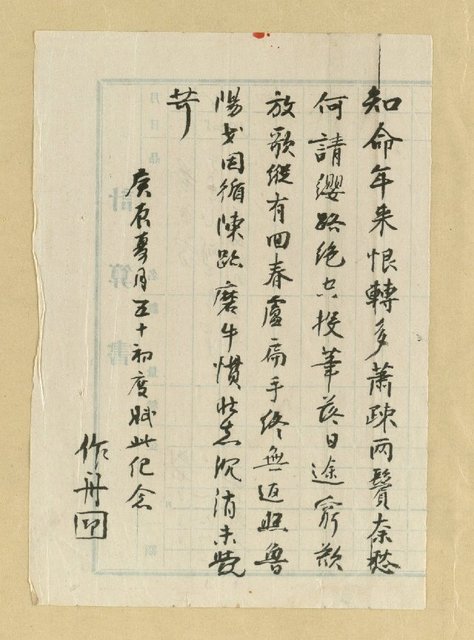 知命年來恨轉多蕭疎兩鬢奈愁
何請纓路絶空投筆落日途窮欲
放歌縱有回春盧扁手終無返照魯
陽戈因循陳跡磨牛慣壯志沉消未覺
苛
庚辰夏月五十初度賦此紀念
作舟印
計算書